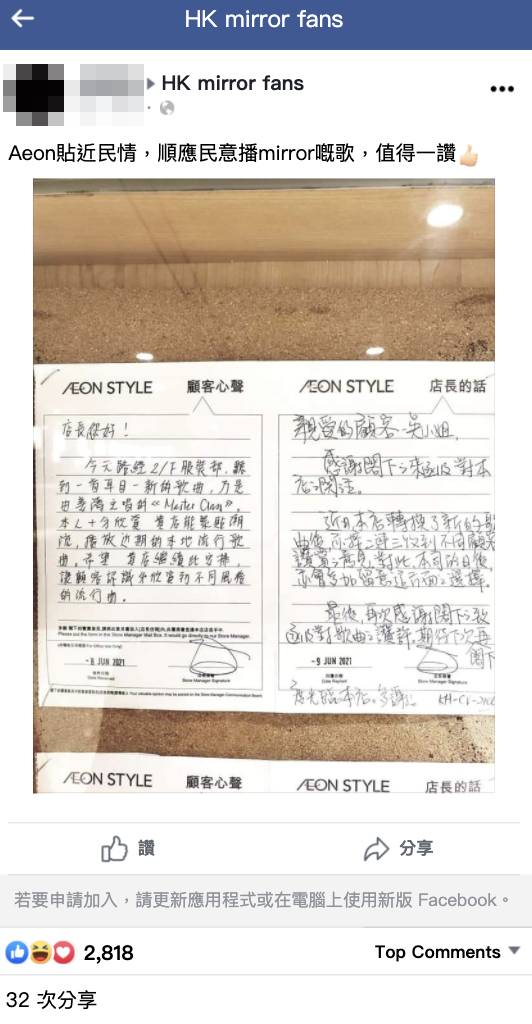 HK mirror fans
HK mirror fans
Aeon貼近民情，順應民意播mirror嘅歌，值得一讚👍🏻
ÆON STYLE 顧客心聲
店長您好！
今天路經2/F服裝部，聽
到一首耳目一新的歌曲，乃是
由姜濤主唱的《Master Class》。
本人十分欣賞貴店能緊貼潮
流，播放近期的本地流行歌
曲。希望貴店繼續此安排，
讓顧客認識和欣賞到不同風格
的流行曲。
Please put the form in the Store Manager Mail Box. It would go directly to our Store Manager.
(For Office Use Only)
- 8 JUN 2021
Date Received
Store Manager Signature
Your valuable opinion may be posted on the Store Manager Communication Board
ÆON STYLE 店長的話
親愛的顧客-吳小姐，
感謝閣下之來函及對本
店之關注。
近日本店轉換了新的歌
最後，再次感謝閣下之
期待下次再
閣下
光臨本店。多謝！
- 9 JUN 2021
Date Replied
Store Manager Signature
ÆON STYLE 顧客心聲
ÆON STYLE 店長的話
讚
分享
若要申請加入，請更新應用程式或在電腦上使用新版 Facebook。
2,818
Top Comments
32 次分享